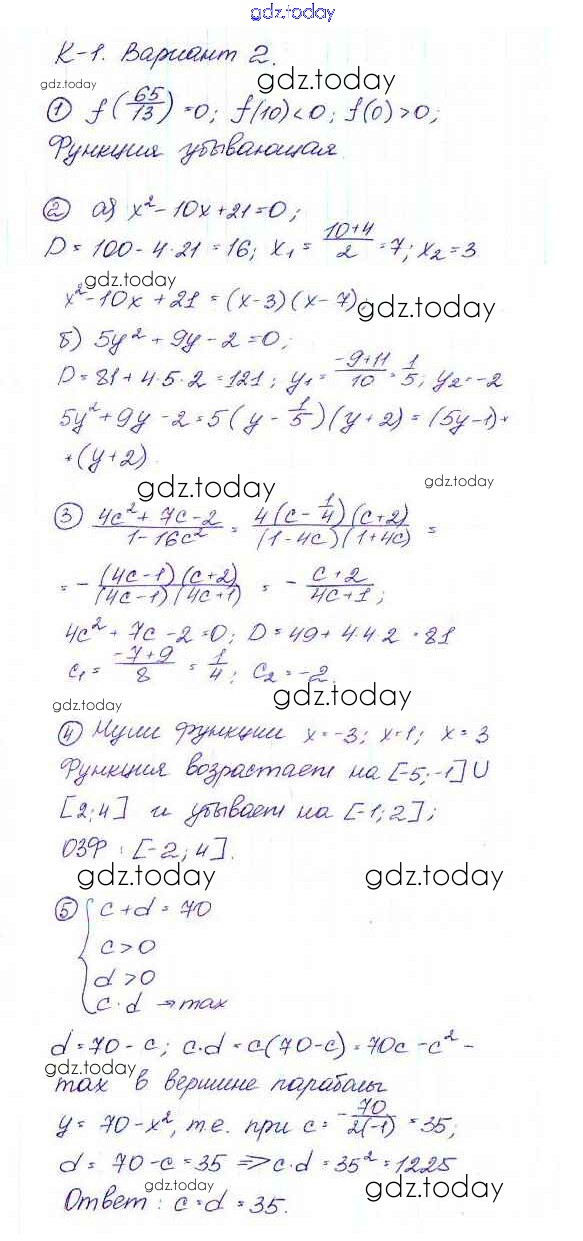 gdz.today
К-1. Вариант 2.
gdz.today gdz.today
① f(65/13)=0; f(10)<0; f(0)>0;
Функция убывающая
② а) x²-10x+21=0;
D=100-4·21=16; x₁=(10+4)/2=7; x₂=3
gdz.today
x²-10x+21=(x-3)(x-7);
gdz.today
б) 5y²+9y-2=0;
D=81+4·5·2=121; y₁=(-9+11)/10=1/5; y₂=-2
5y²+9y-2=5(y-1/5)(y+2)=(5y-1)*
*(y+2).
gdz.today gdz.today
③ (4c²+7c-2)/(1-16c²)=(4(c-1/4)(c+2))/((1-4c)(1+4c))=
=-((4c-1)(c+2))/((4c-1)(4c+1))=-(c+2)/(4c+1);
4c²+7c-2=0; D=49+4·4·2=81
c₁=(-7+9)/8=1/4; c₂=-2.
gdz.today gdz.today
④ Нули функции x=-3; x=1; x=3
Функция возрастает на [-5;-1]U
[2;4] и убывает на [-1;2];
ОЗФ: [-2;4].
gdz.today gdz.today
⑤ { c+d=70
c>0
d>0
c·d → max
d=70-c; c·d=c(70-c)=70c-c²-
gdz.today
max в вершине параболы
y=70-x², т.е. при c=-70/(2(-1))=35;
d=70-c=35 => c·d=35²=1225
gdz.today gdz.today
Ответ: c=d=35.